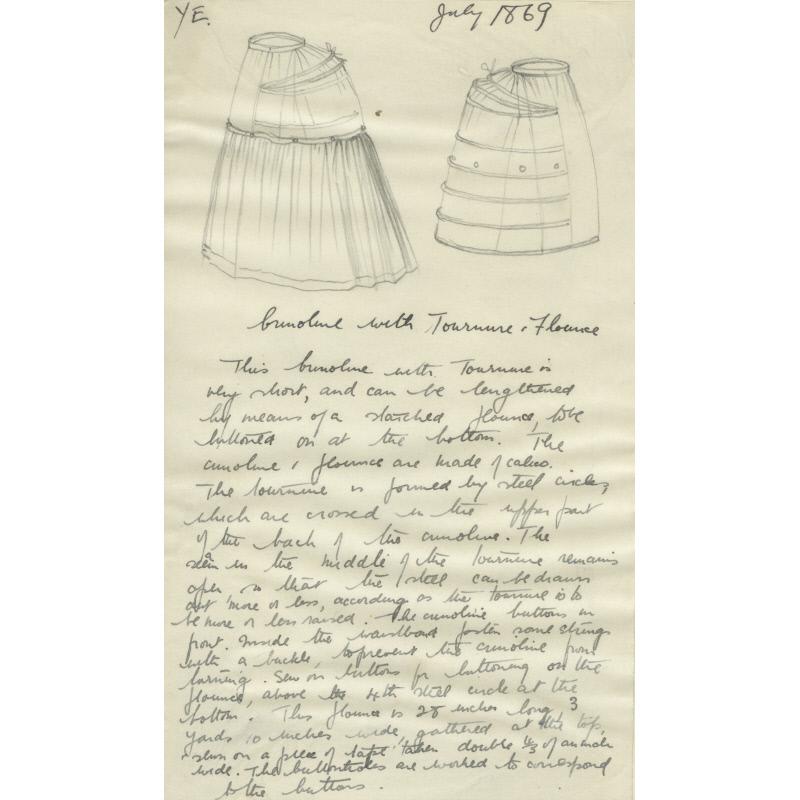 YE.
July 1869
Crinoline with Tournure & Flounce
This crinoline with Tournure is
very short, and can be lengthened
by means of a starched flounce, to be
buttoned on at the bottom. The
crinoline & flounce are made of calico.
The tournure is formed by steel circles,
which are crossed in the upper part
of the back of the crinoline. The
seam in the middle of the tournure remains
open so that the steel can be drawn
out more or less, according as the tournure is to
be more or less raised. The crinoline buttons in
front. Inside the waistband fasten some strings
with a buckle, to prevent the crinoline from
turning. Sew on buttons for buttoning on the
flounce, above the 4th steel circle at the
bottom. This flounce is 28 inches long, 3
yards 10 inches wide, gathered at the top,
& sewn on a piece of tape taken double, 1/3 of an inch
wide. The buttonholes are worked to correspond
to the buttons.